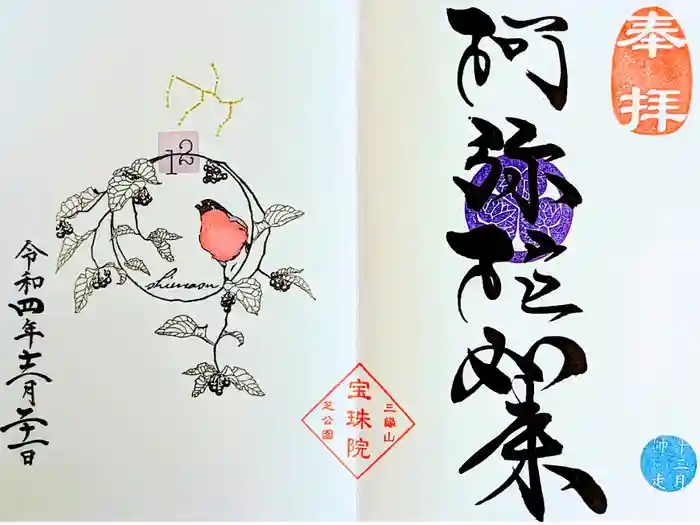 奉拝
阿弥陀如来
十二月
師走
三縁山
宝珠院
芝公園
12
Shiwasu
令和四年十二月二十一日